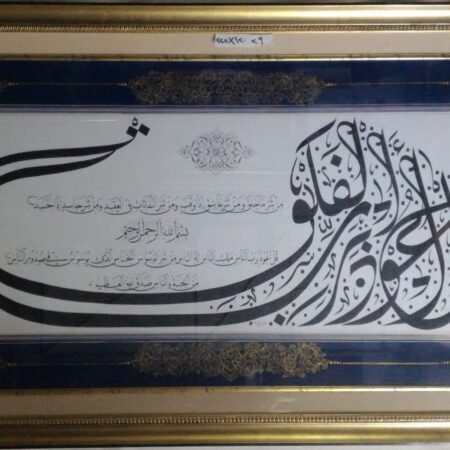 أعوذ برب الفلق
من شر ما خلق ومن شر غاسق إذا وقب ومن شر النفاثات في العقد ومن شر حاسد إذا حسد
بسم الله الرحمن الرحيم
قل أعوذ برب الناس ملك الناس إله الناس من شر الوسواس الخناس الذي يوسوس في صدور الناس
من الجنة والناس صدق الله العظيم